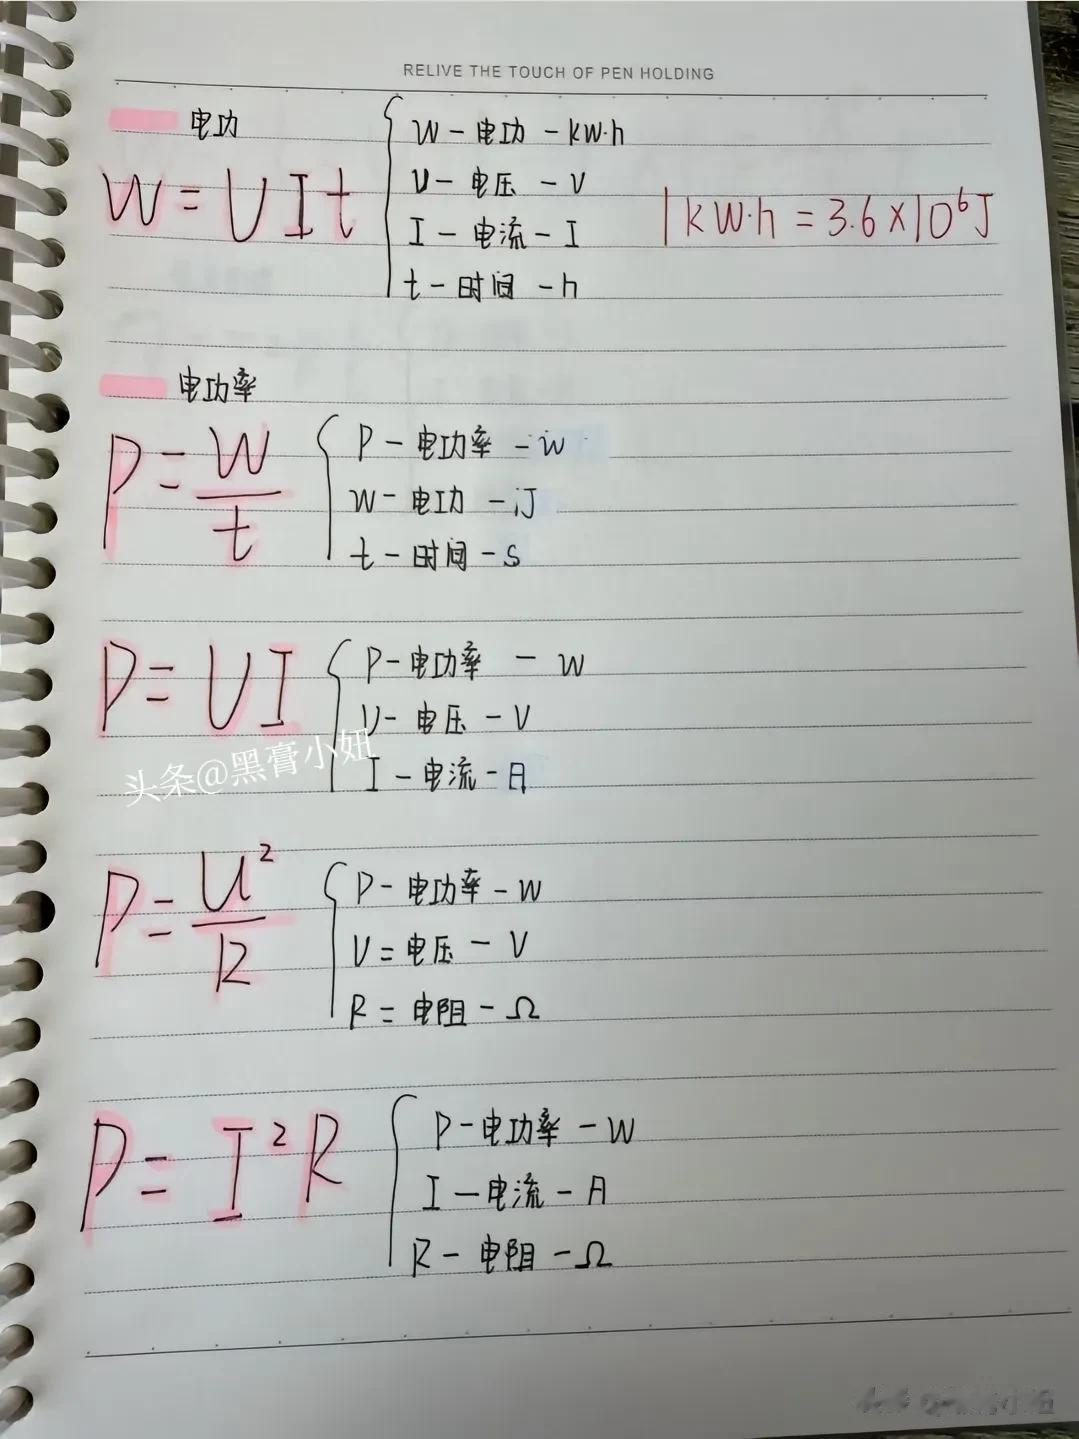 RELIVE THE TOUCH OF PEN HOLDING
电功
W = UIt
W - 电功 - kW·h
U - 电压 - V
I - 电流 - I
t - 时间 - h
1kW·h = 3.6×10⁶J
电功率
P = W/t
P - 电功率 - W
W - 电功 - J
t - 时间 - s
P = UI
P - 电功率 - W
U - 电压 - V
I - 电流 - A
头条@黑膏小妞
P = U²/R
P - 电功率 - W
U = 电压 - V
R = 电阻 - Ω
P = I²R
P - 电功率 - W
I - 电流 - A
R - 电阻 - Ω